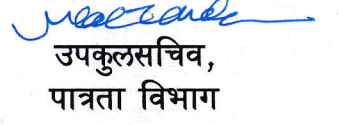 उपकुलसचिव,
पात्रता विभाग